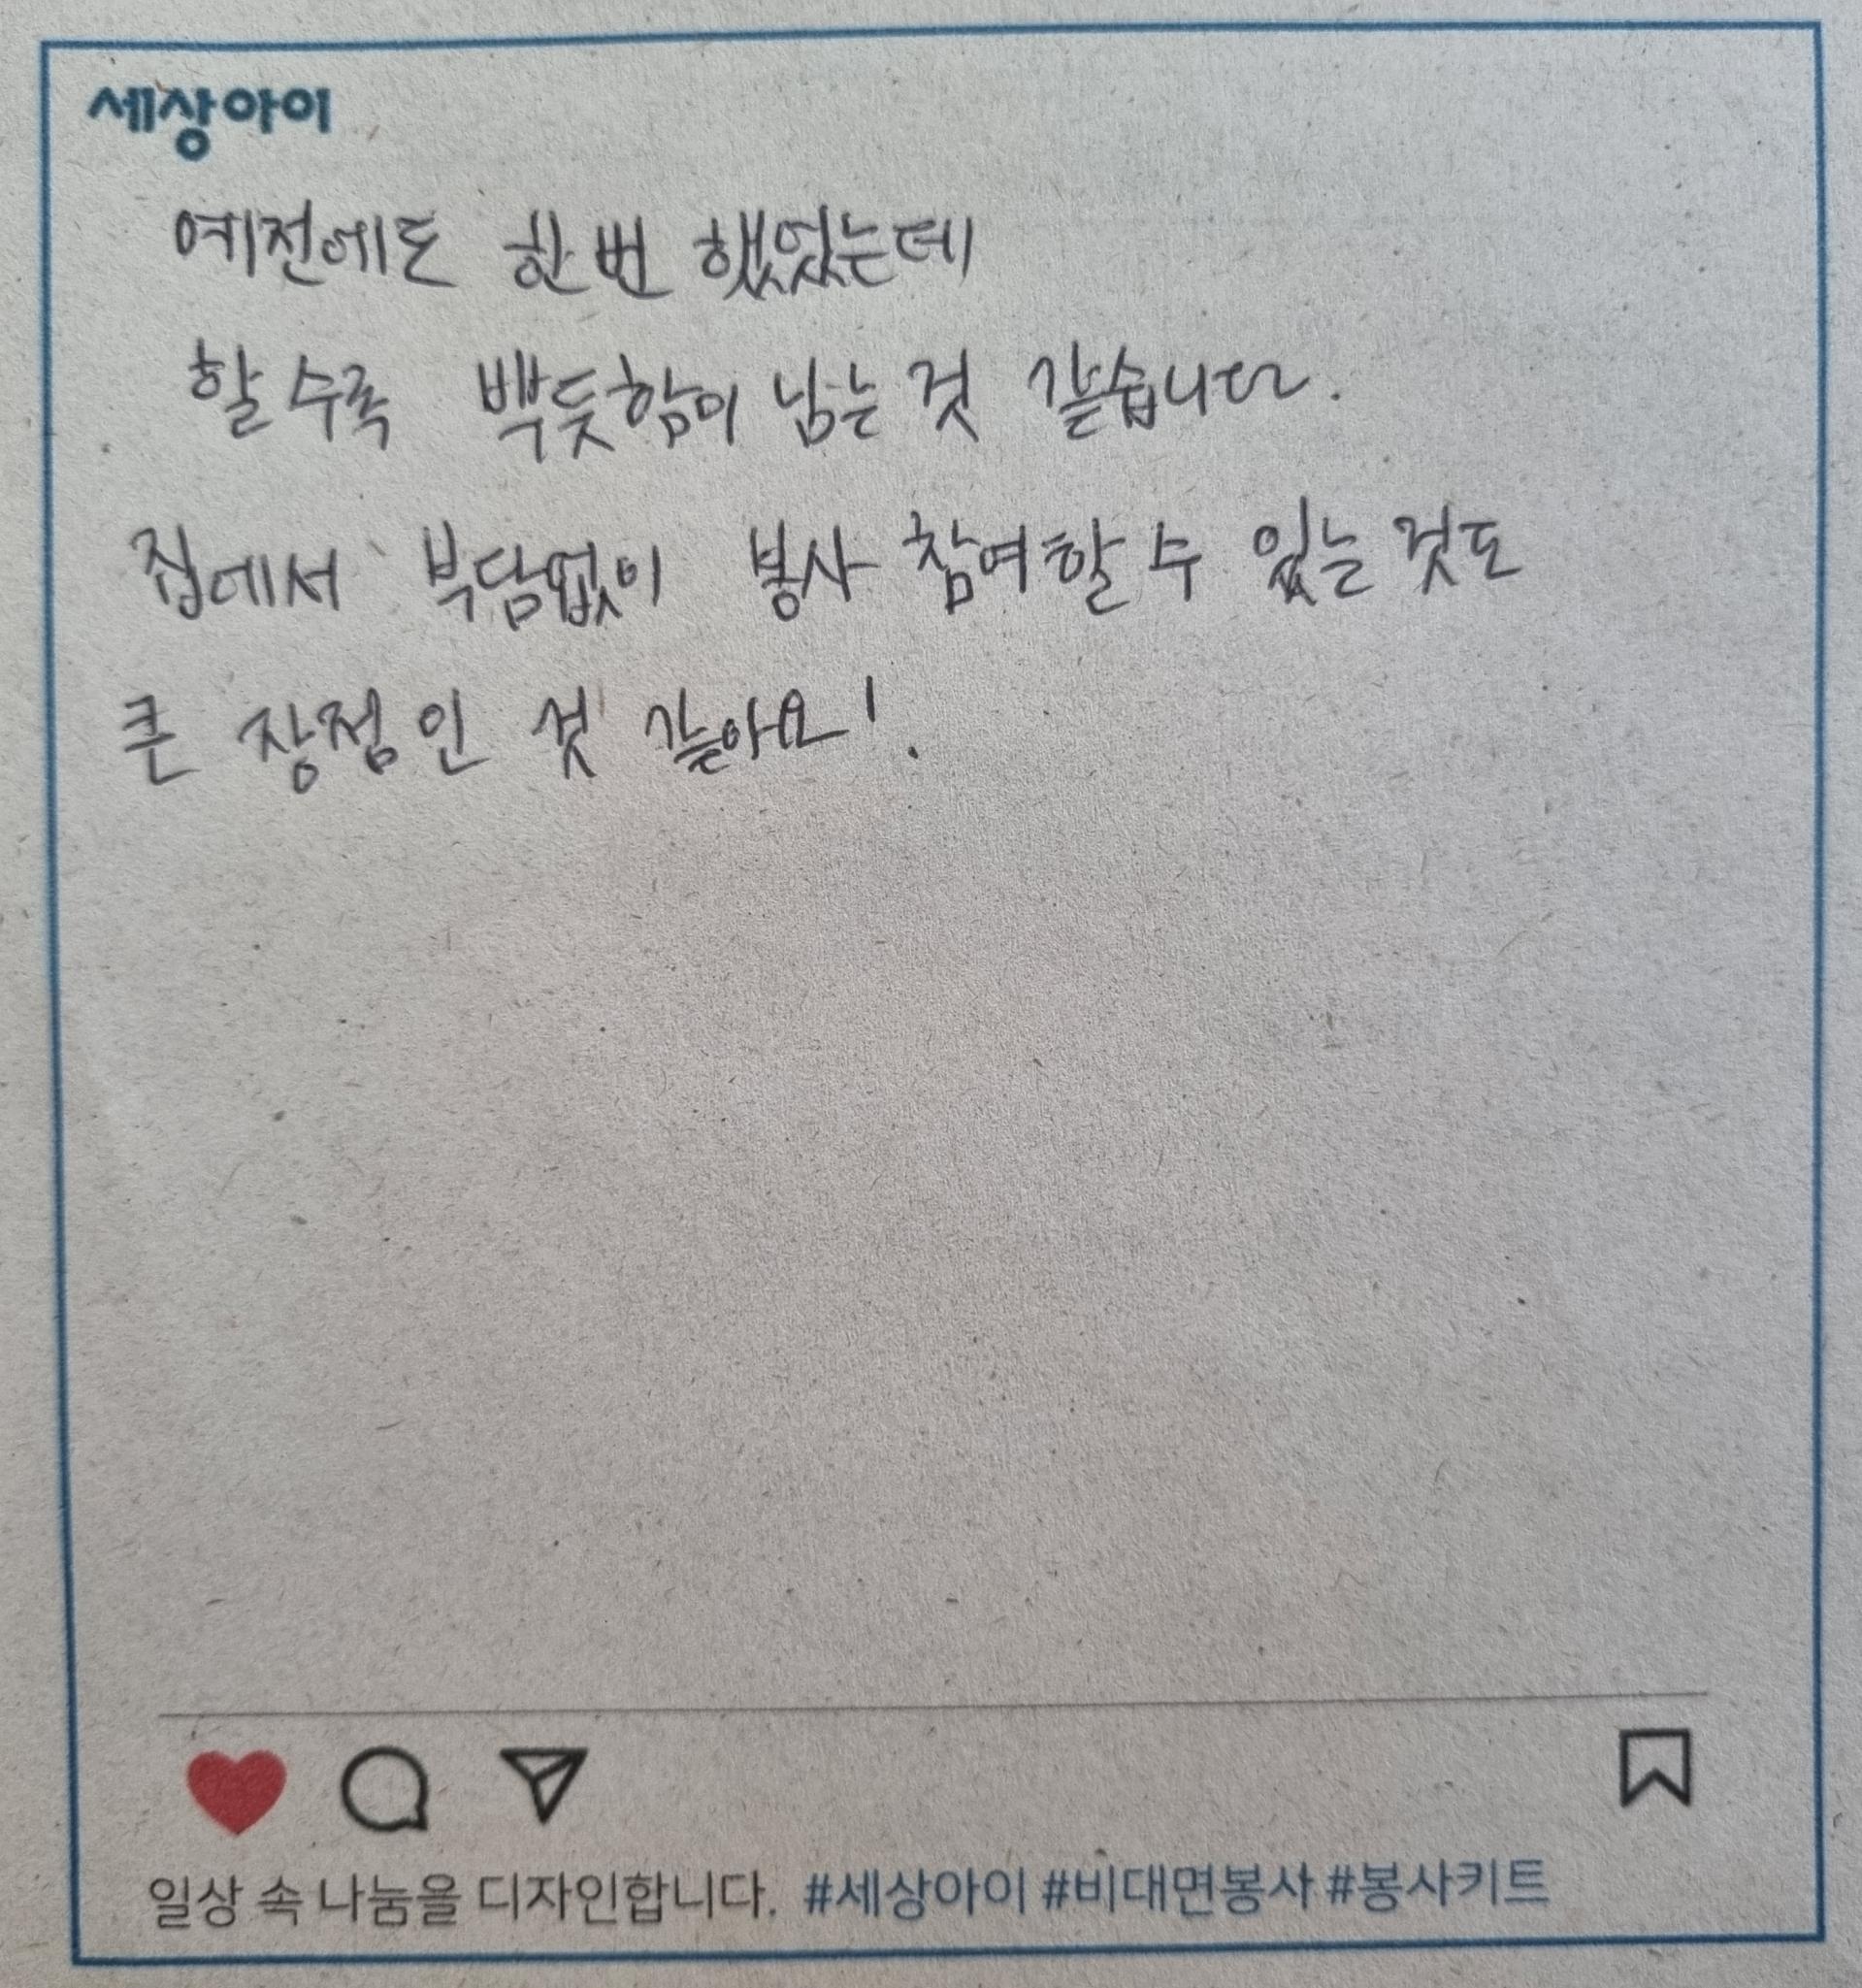 세상아이
예전에도 한번 했었는데
할수록 뿌듯함이 남는 것 같습니다.
집에서 부담없이 봉사 참여할 수 있는 것도
큰 장점인 것 같아요!
일상 속 나눔을 디자인합니다. #세상아이 #비대면봉사 #봉사키트